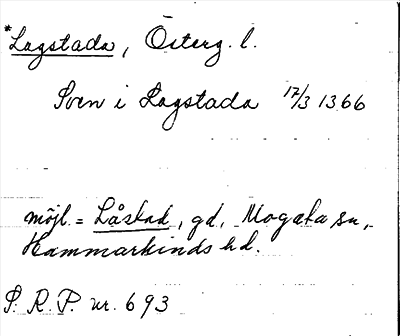 *Lagstada, Österg. l.
Sven i Lagstada 17/3 1366
möjl. = Låstad, gd, Mogata sn,
Hammarkinds hd.
S. R. P. nr. 693